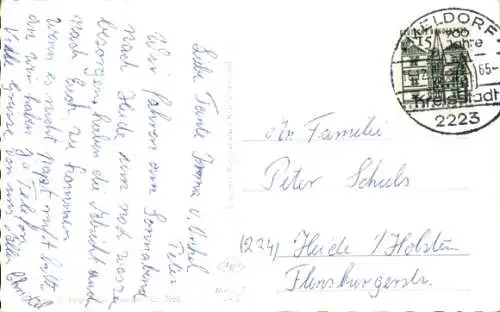 Liebe Tante Irma u. Onkel
Peter
Wir fahren am Sonnabend
nach Heide um noch was zu
besorgen, haben die Absicht auch
nach Euch zu kommen
wenn es nicht passt ruft bitte
an wir haben ja Telefon
Viele Grüsse von uns allen
An Familie
Peter Schuls
(224) Heide / Holstein
Flensburgerstr.
MELDORF
700
Jahre
15
65-
Kreisstadt
2223